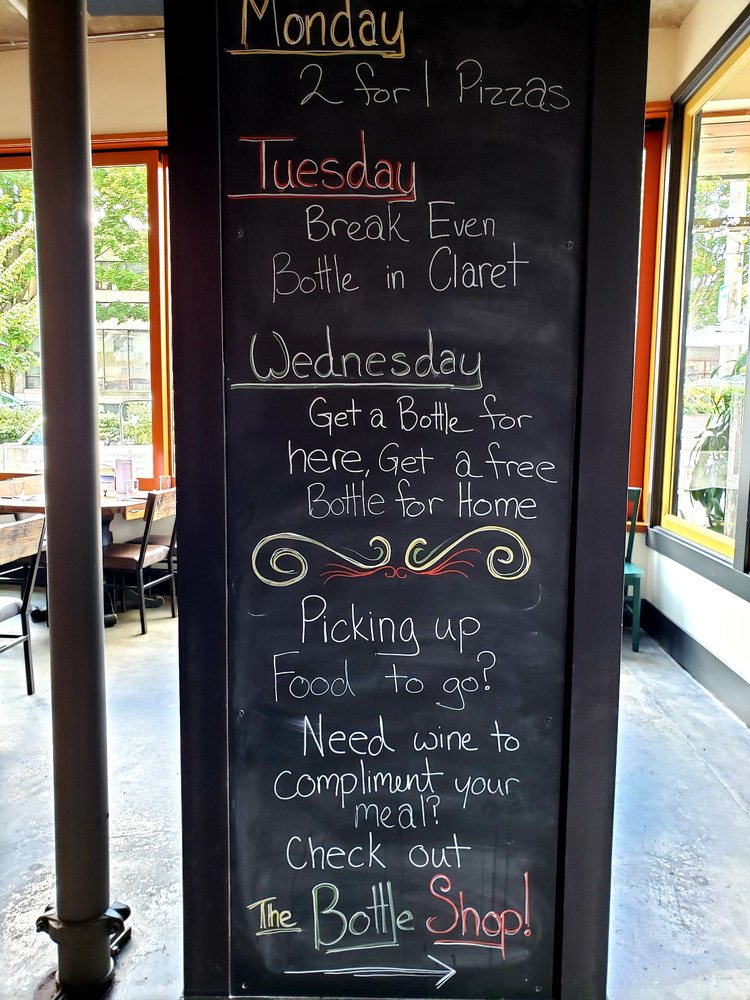 Monday
2 for 1 Pizzas
Tuesday
Break Even
Bottle in Claret
Wednesday
Get a Bottle for
here, Get a free
Bottle for Home
Picking up
Food to go?
Need wine to
compliment your
meal?
Check out
The Bottle Shop!